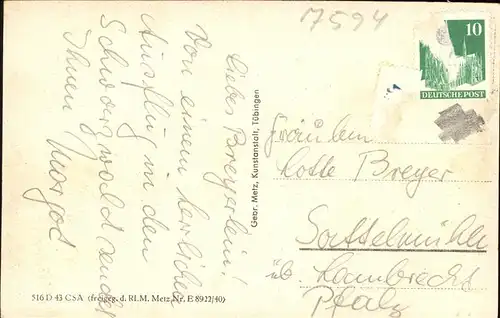 17594
10
DEUTSCHE POST
Liebes Breyerlein!
Von einem herrlichen
Ausflug in den
Schwarzwald sendet
Ihnen
Margot
Gebr. Metz, Kunstanstalt, Tübingen
Fräulein
Lotte Breyer
Sattelmühle
üb. Lambrecht
Pfalz
516 D 43 CSA (freigeg. d. RLM. Metz Nr. E 8922/40)